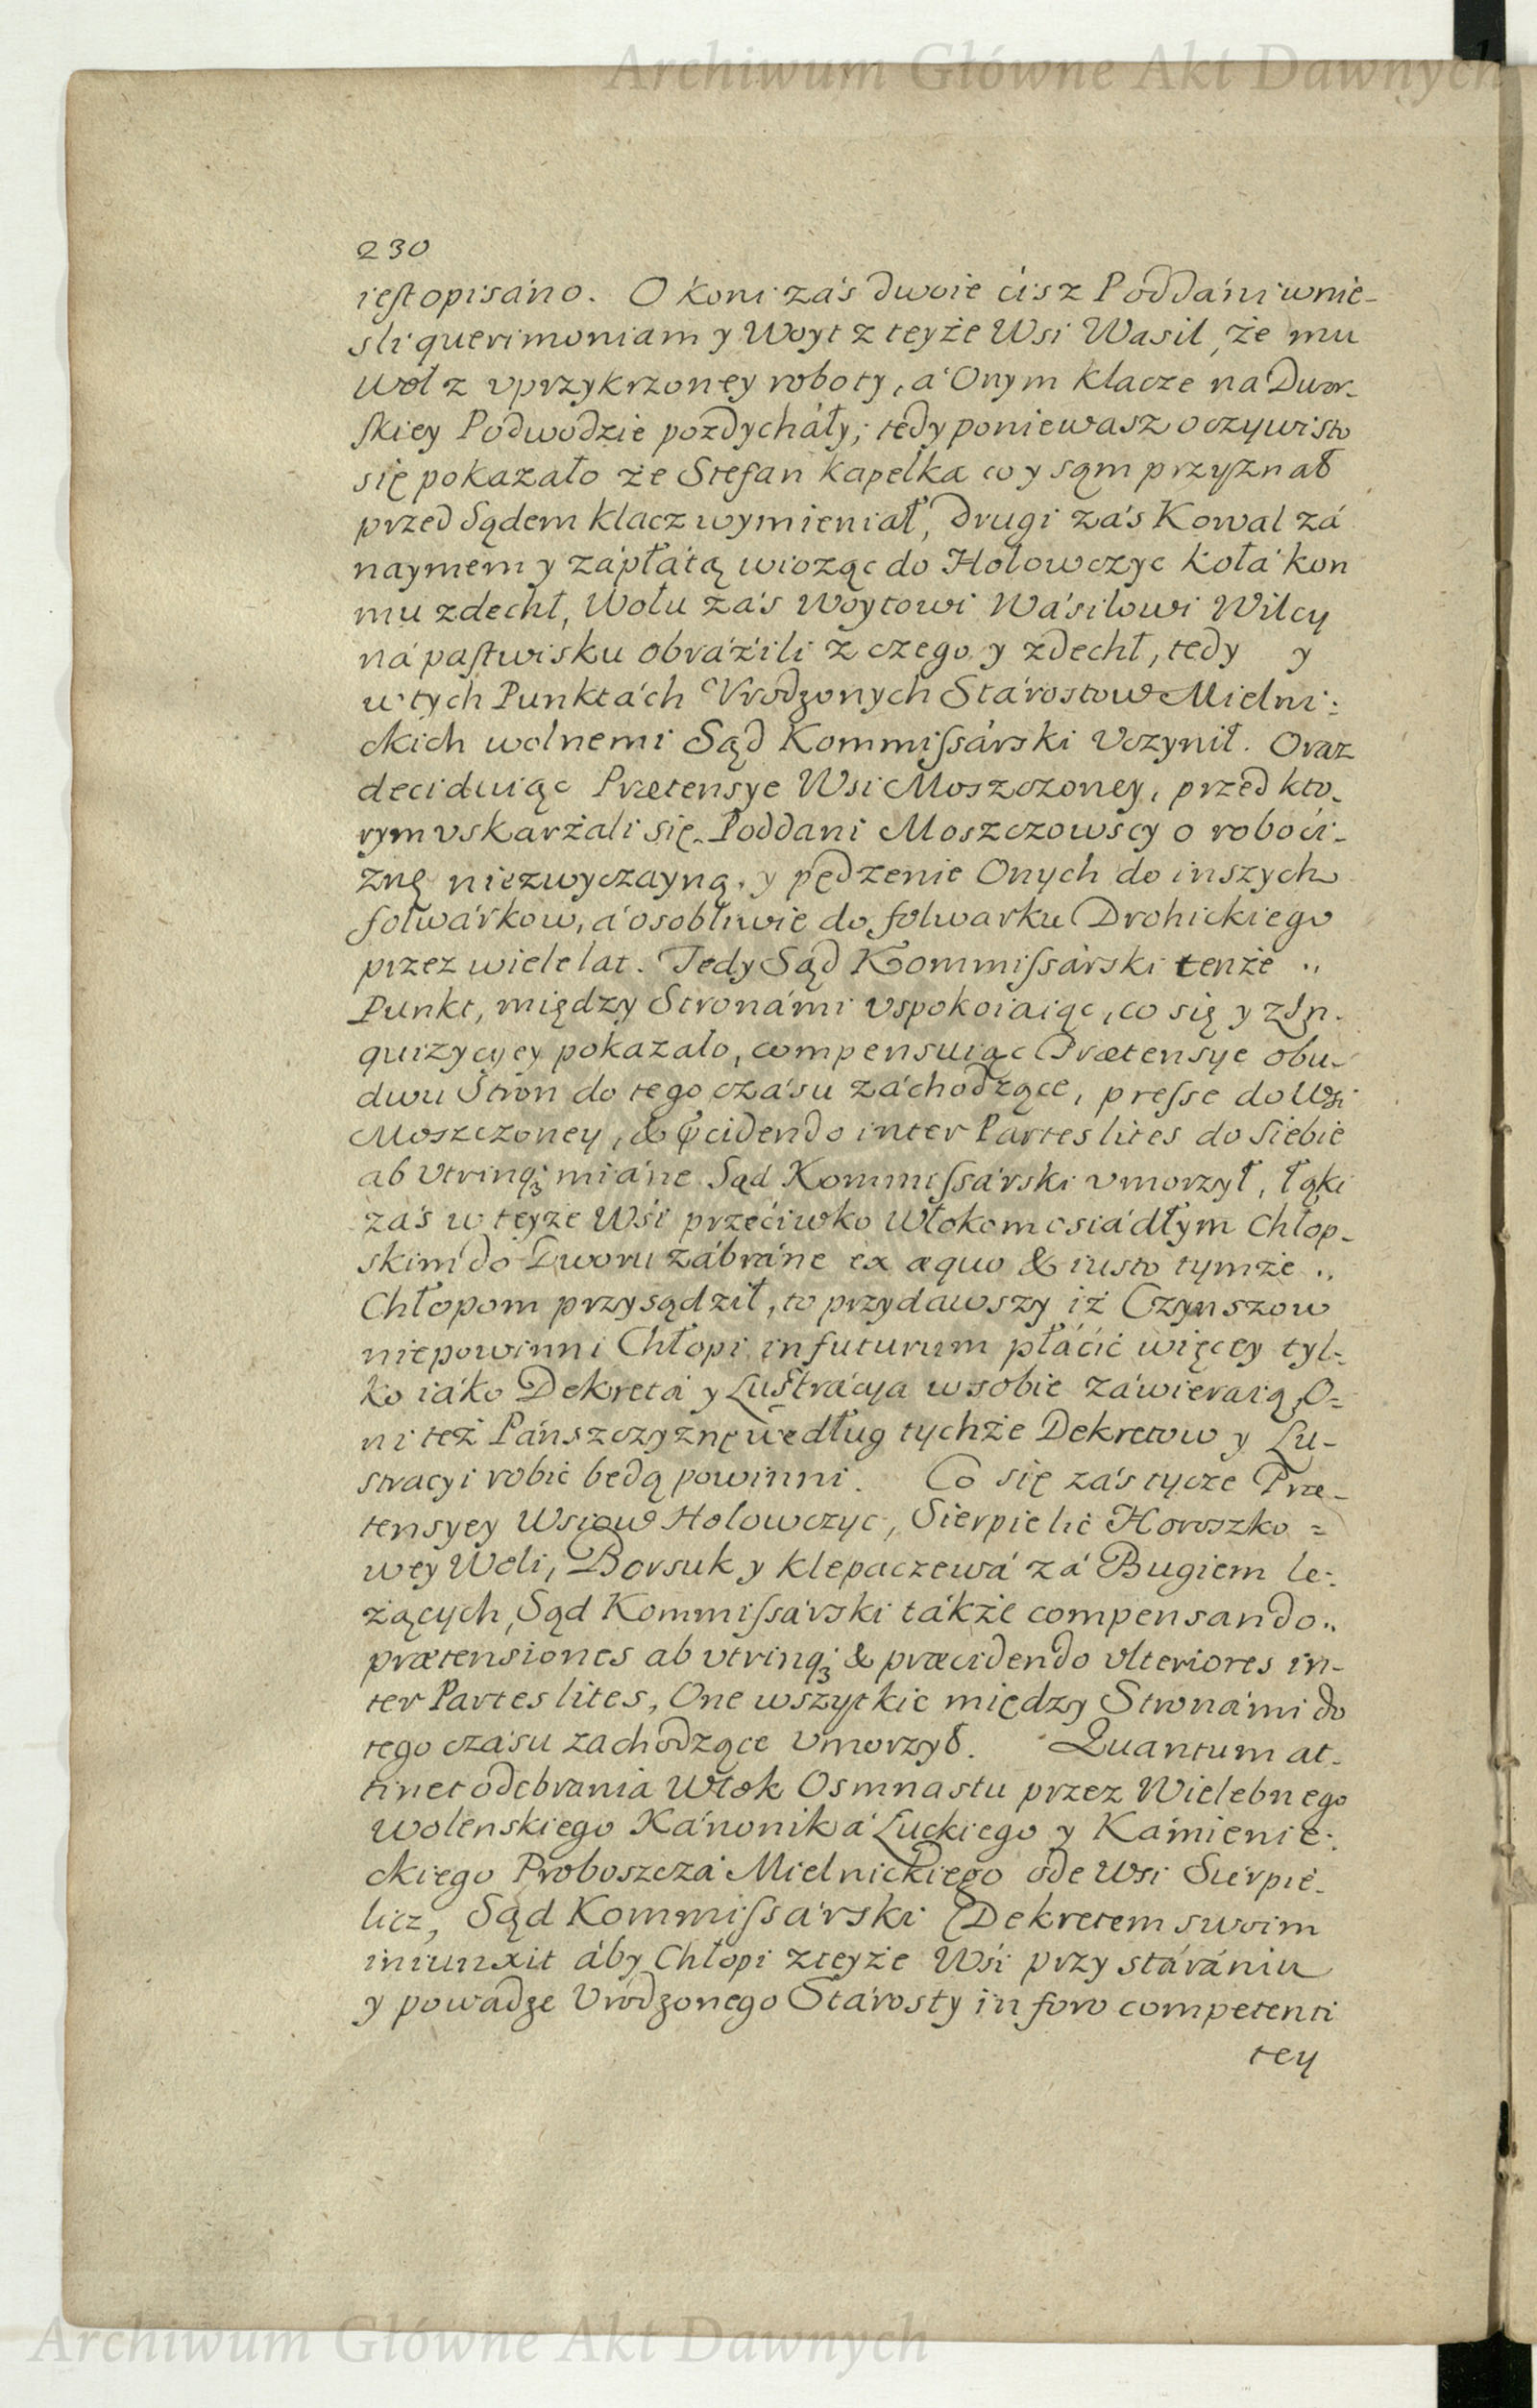 Archiwum Główne Akt Dawnych
230
iest opisáno. O koni záś dwoie ciż Poddáni wnie-
śli querimoniam y Woyt z teyże Wsi Wasil, że mu
Woł z vprzykrzoney roboty, á Onym klacze na Dwor-
skiey Podwodzie pozdycháły; tedy poniewasz oczywisto
się pokazało że Stefan Kapelka co y sąm przyznał
przed Sądem klacz wymieniał, drugi záś Kowal zá
naymem y zápłátą wioząc do Hołowczyc kołá kon
mu zdechł, Wołu záś Woytowi Wásilowi Wilcy
ná pastwisku obráźili z czego y zdechł, tedy y
w tych Punktách Vrodzonych Stárostow Mielni-
ckich wolnemi Sąd Kommissárski Vczynił. Oraz
deciduiąc Prætensye Wsi Moszczoney, przed kto-
rym vskarżali się Poddani Moszczowscy o roboći-
znę niezwyczayną, y pędzenie Onych do inszych
folwárkow, á osobliwie do folwarku Drohickiego
przez wiele lat. Tedy Sąd Kommissárski tenże
Punkt, między Stronámi vspokoiaiąc, co się y z In-
quizycyey pokazało, compensuiąc Prætensye obu-
dwu Stron do tego czásu záchodzące, presse do Wsi
Moszczoney, & præcidendo inter Partes lites do Siebie
ab Vtrinq; miáne Sąd Kommissárski vmorzył, łąki
záś w teyże Wśi przećiwko Włokom osiádłym Chłop-
skim do Dworu zábráne ex æquo & iusto tymże
Chłopom przysądził, to przydawszy iż Czynszow
niepowinni Chłopi in futurum płáćić więcey tyl-
ko iáko Dekretá y Lustrácya w sobie záwieraią, O-
ni też Pánszczyznę według tychże Dekretow y Lu-
stracyi robić będą powinni. Co się záś tycze Præ-
tensyey Wsiow Holowczyc, Sierpielic Horoszko-
wey Woli, Borsuk y Klepaczewá zá Bugiem le-
żących, Sąd Kommissárski tákże compensando
prætensiones ab vtrinq; & præcidendo vlteriores in-
ter Partes lites, One wszytkie między Stronámi do
tego czásu zachodzące Vmorzył. Quantum at-
tinet odebrania Włok Osmnastu przez Wielebnego
Wolenskiego Kánoniká Łuckiego y Kámienie-
ckiego Proboszczá Mielnickiego ode Wsi Sierpie-
licz, Sąd Kommissárski Dekretem swoim
iniunxit áby Chłopi z teyże Wśi przy stárániu
y powadze Vrodzonego Stárosty in foro competenti
tey
Archiwum Główne Akt Dawnych